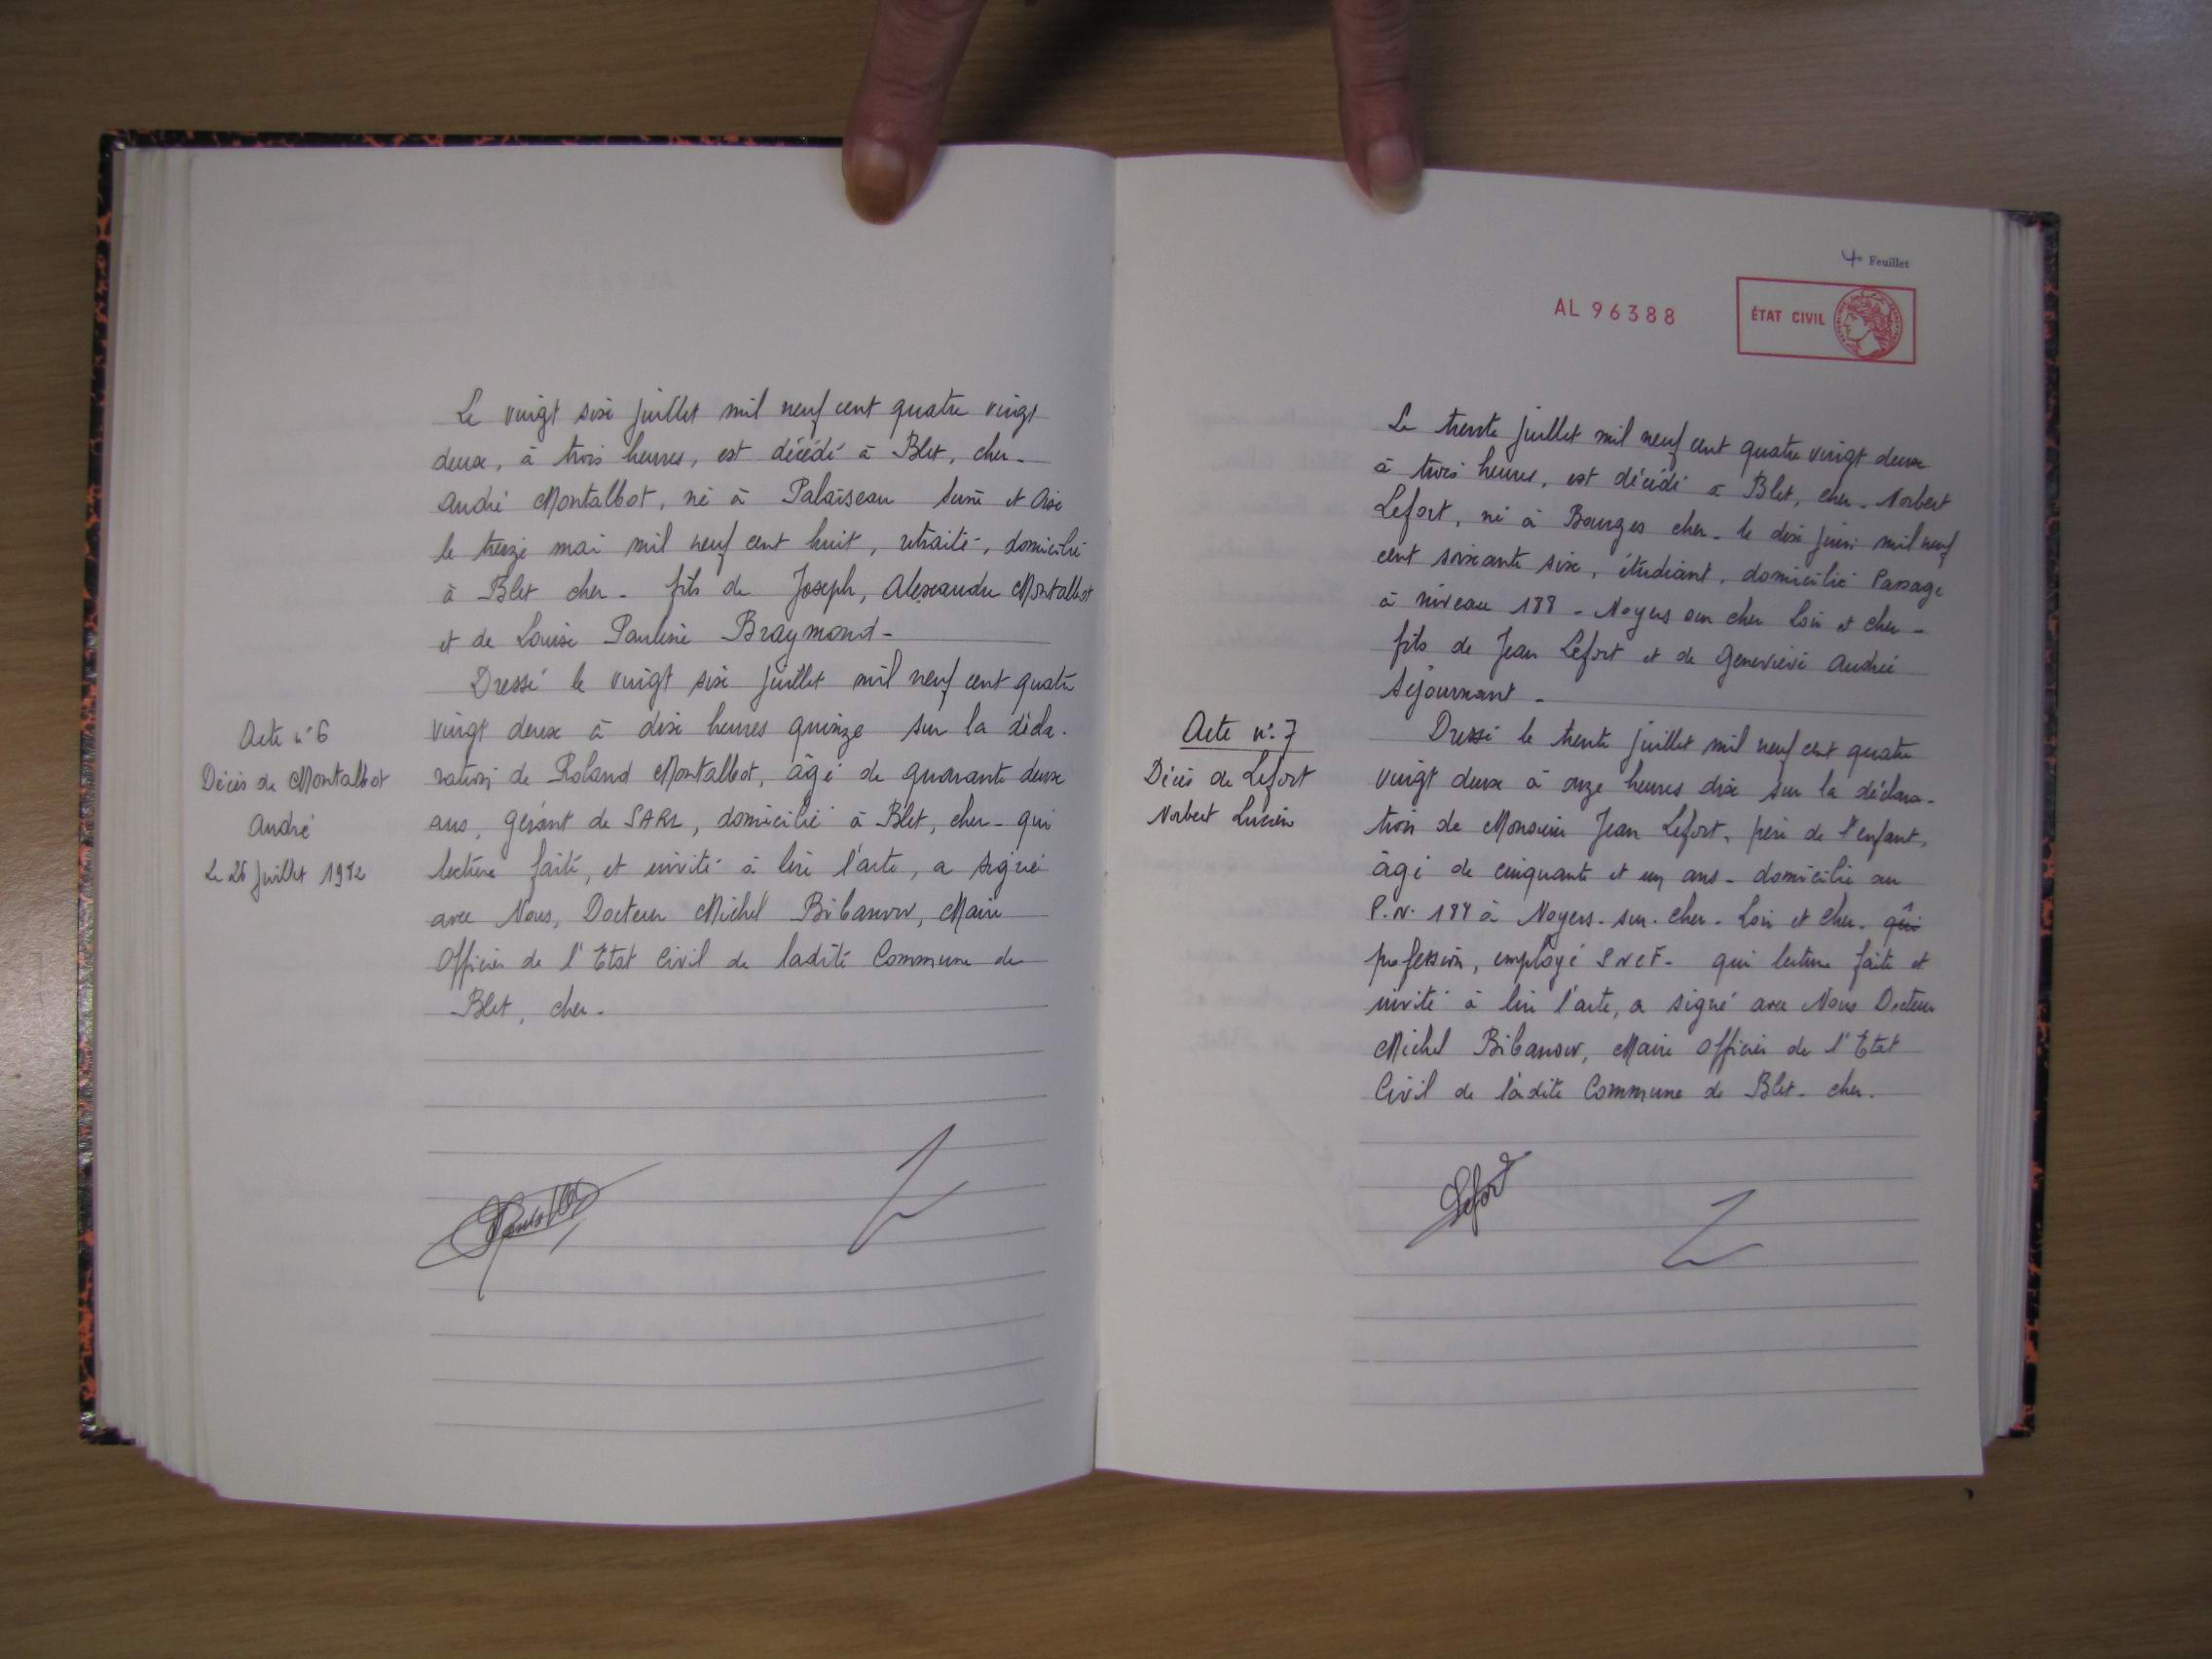 Le vingt six juillet mil neuf cent quatre vingt
deux, à trois heures, est décédé à Blet, cher-
André Montalbot, né à Palaiseau Seine et Oise
le treize mai mil neuf cent huit, retraité, domicilié
à Blet cher- fils de Joseph, Alexandre Montalbot
et de Louise Pauline Braymond-
Dressé le vingt six juillet mil neuf cent quatre
vingt deux à dix heures quinze sur la décla-
ration de Roland Montalbot, âgé de quarante deux
ans, gérant de SARL, domicilié à Blet, cher- qui
lecture faite, et invité à lire l'acte, a signé
avec Nous, Docteur Michel Bibanow, Maire
Officier de l'Etat Civil de ladite Commune de
Blet, cher-
Acte n°6
Décès de Montalbot
André
Le 26 juillet 1982
4e Feuillet
AL 96388
ÉTAT CIVIL
Le trente juillet mil neuf cent quatre vingt deux
à trois heures, est décédé à Blet, cher- Norbert
Lefort, né à Bourges cher- le dix juin mil neuf
cent soixante six, étudiant, domicilié Passage
à niveau 188 - Noyers sur cher Loir et cher-
fils de Jean Lefort et de Geneviève Andrée
Séjournant -
Dressé le trente juillet mil neuf cent quatre
vingt deux à onze heures dix sur la déclara-
tion de Monsieur Jean Lefort, père de l'enfant,
âgé de cinquante et un ans- domicilié au
P.N. 188 à Noyers-sur-cher- Loir et cher- qui
profession, employé SNCF- qui lecture faite et
invité à lire l'acte, a signé avec Nous Docteur
Michel Bibanow, Maire Officier de l'Etat
Civil de ladite Commune de Blet- cher.
Acte n°7
Décès de Lefort
Norbert Lucien
Lefort